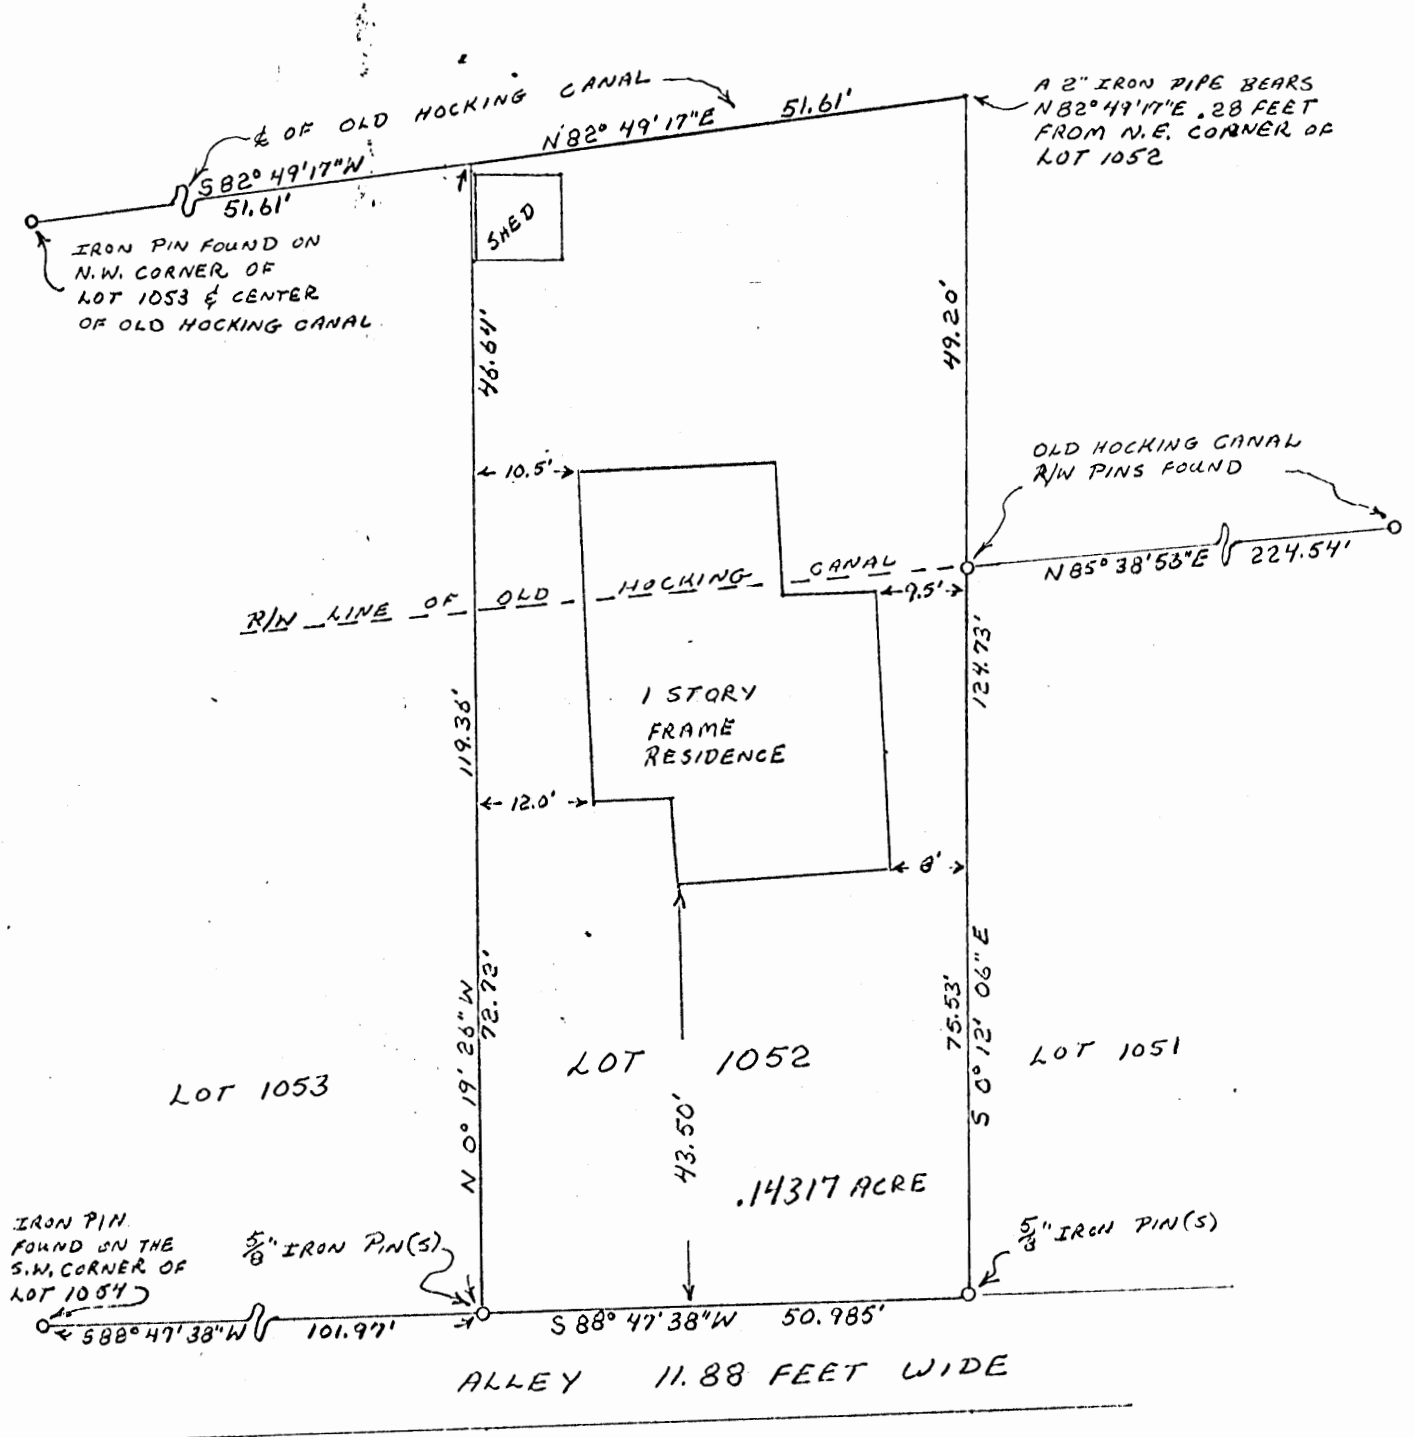 ℄ OF OLD HOCKING CANAL
N 82° 49' 17" E 51.61'
S 82° 49' 17" W
51.61'
A 2" IRON PIPE BEARS
N 82° 49' 17" E .28 FEET
FROM N.E. CORNER OF
LOT 1052
SHED
IRON PIN FOUND ON
N.W. CORNER OF
LOT 1053 & CENTER
OF OLD HOCKING CANAL
46.64'
49.20'
10.5'
OLD HOCKING CANAL
R/W PINS FOUND
N 85° 38' 53" E 224.54'
R/W LINE OF OLD HOCKING CANAL
9.5'
119.36'
124.73'
1 STORY
FRAME
RESIDENCE
12.0'
8'
N 0° 19' 26" W
72.72'
75.53'
S 0° 12' 06" E
LOT 1053
LOT 1052
LOT 1051
43.50'
.14317 ACRE
IRON PIN
FOUND ON THE
S.W. CORNER OF
LOT 1054
5/8" IRON PIN(S)
5/8" IRON PIN(S)
S 88° 47' 38" W 101.97'
S 88° 47' 38" W 50.985'
ALLEY 11.88 FEET WIDE